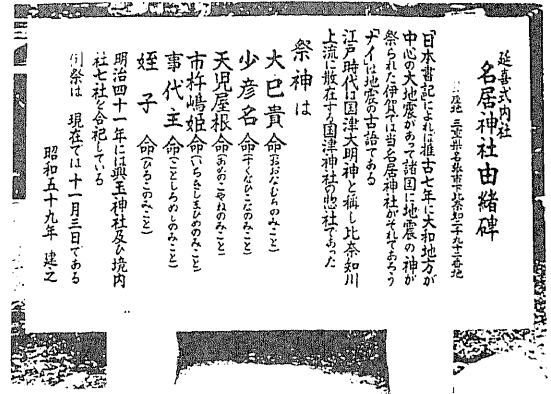 延喜式内社
名居神社由緒碑
所在地 三重県名張市下比奈知二千九十二番地
「日本書記によれば推古七年に大和地方が
中心の大地震があって諸国に地震の神が
祭られた伊賀では当名居神社がそれであろう
ナイは地震の古語である
江戸時代は国津大明神と称し比奈知川
上流に散在する国津神社の惣社であった
祭神は
大巳貴命(おおなむちのみこと)
少彦名命(すくなひこなのみこと)
天児屋根命(あめのこやねのみこと)
市杵嶋姫命(いちきしまひめのみこと)
事代主命(ことしろぬしのみこと)
蛭子命(ひるこのみこと)
明治四十一年には興玉神社及び境内
社七社を合祀している
例祭は 現在では十一月三日である
昭和五十九年 建之